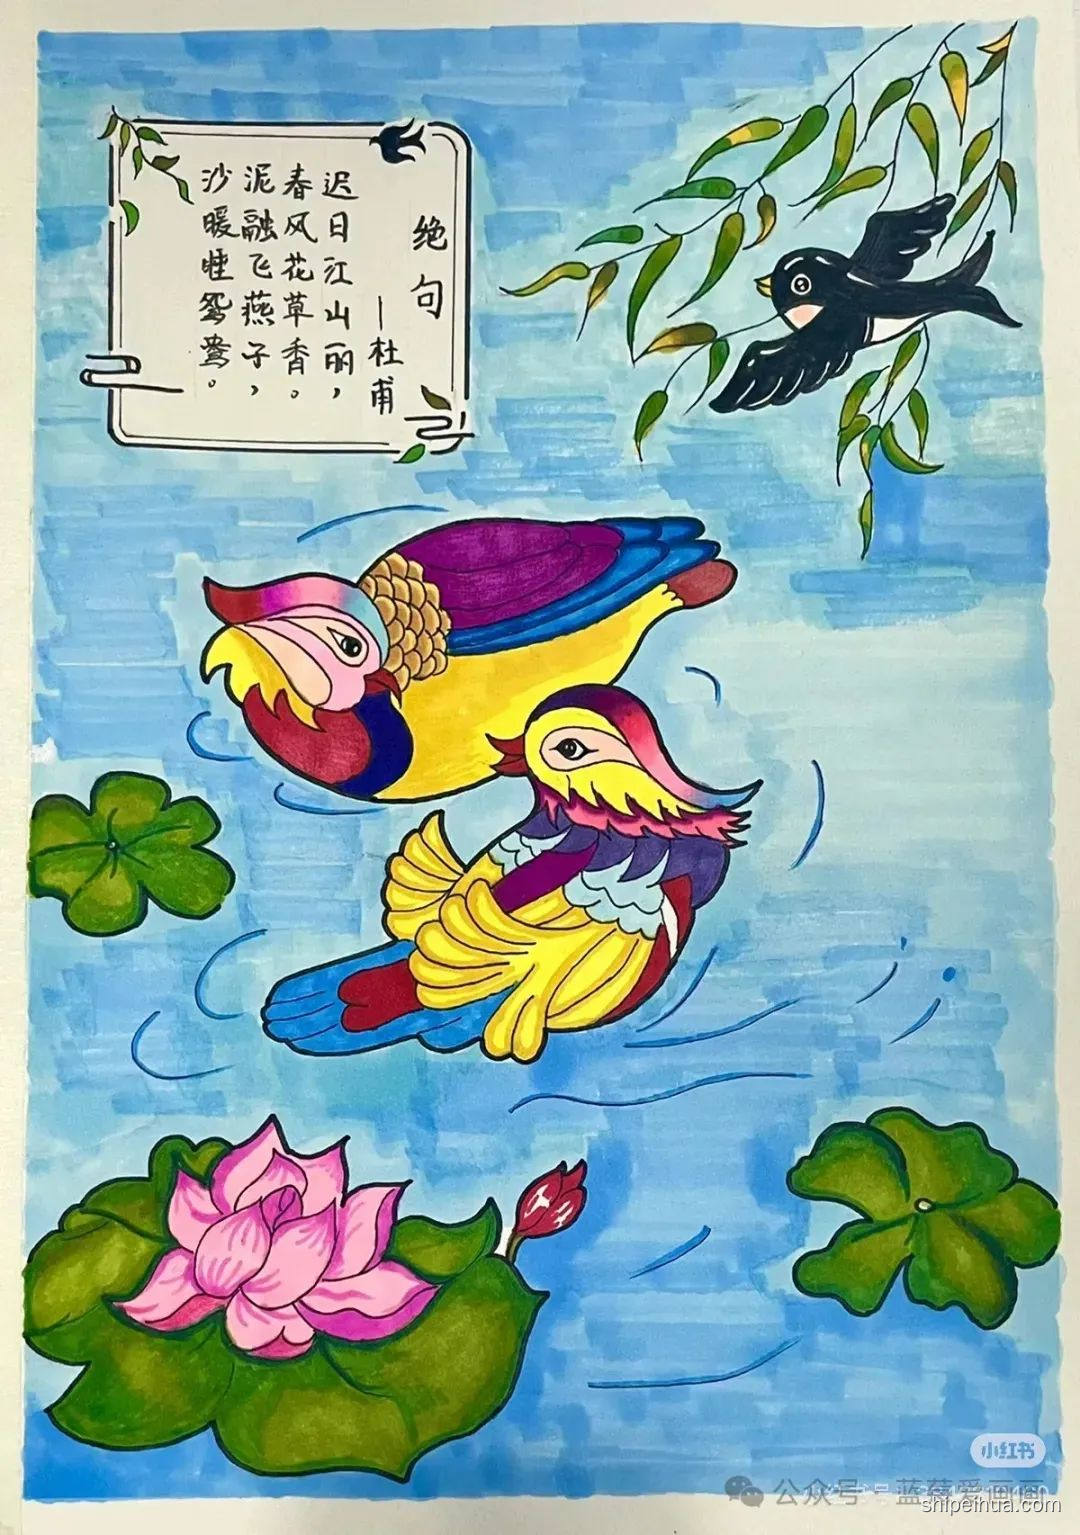 绝句
—杜甫
迟日江山丽，
春风花草香。
泥融飞燕子，
沙暖睡鸳鸯。
小红书
公众号·蓝莓爱画画
shipeihua.com